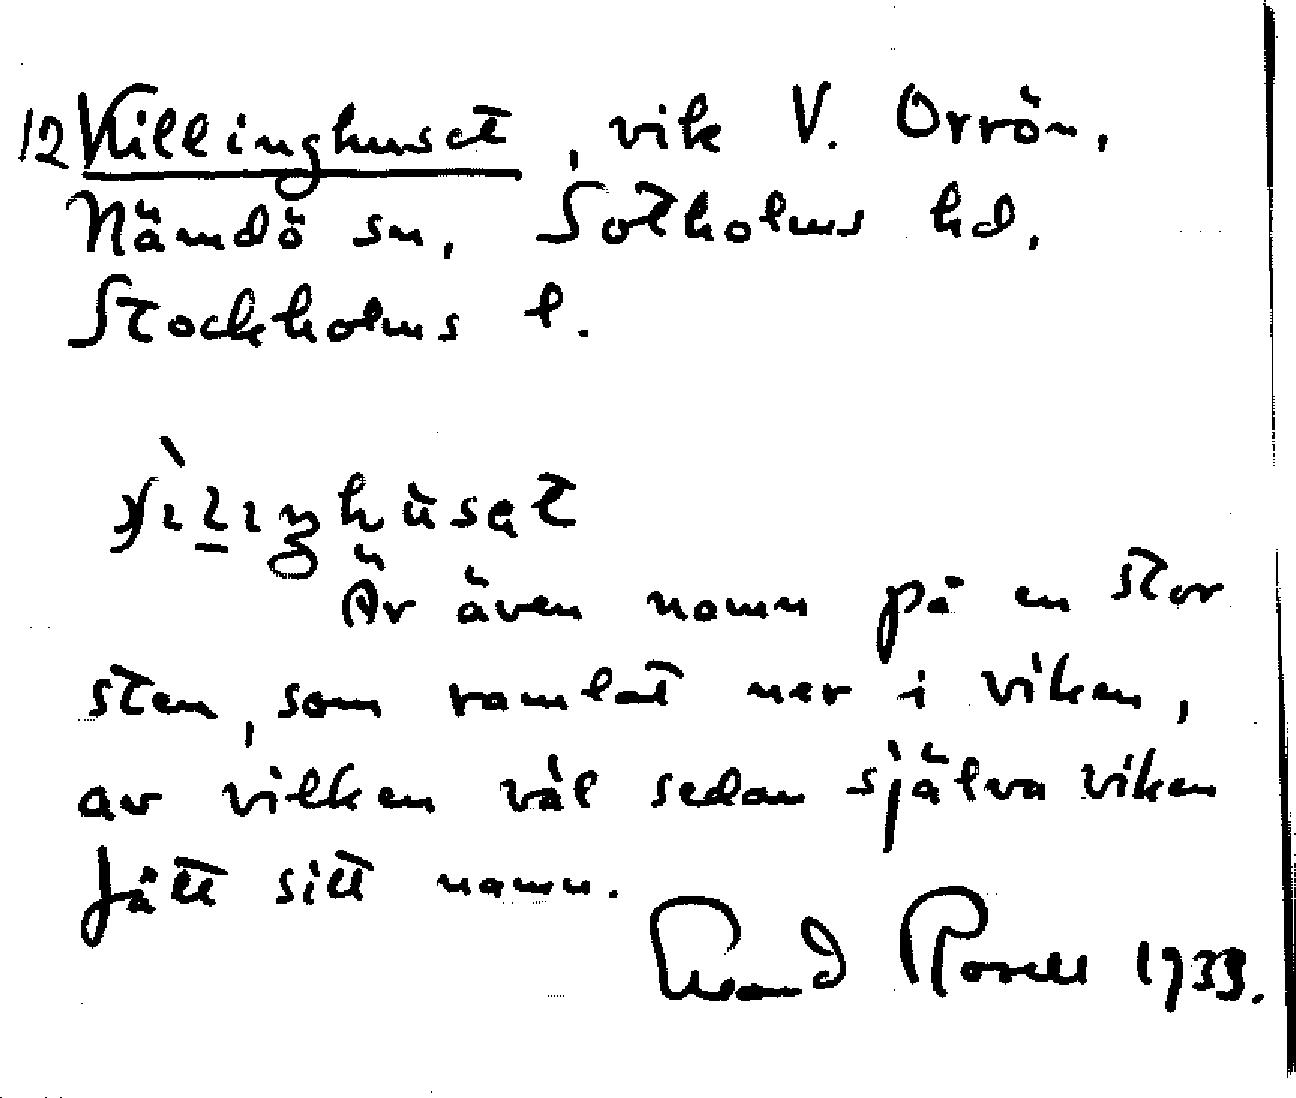 12 Killinghuset, vik V. Orrön,
Nämdö sn, Sotholms hd,
Stockholms l.
Är även namn på en stor
sten, som ramlat ner i viken,
av vilken väl sedan själva viken
fått sitt namn.
Rosell 1933.